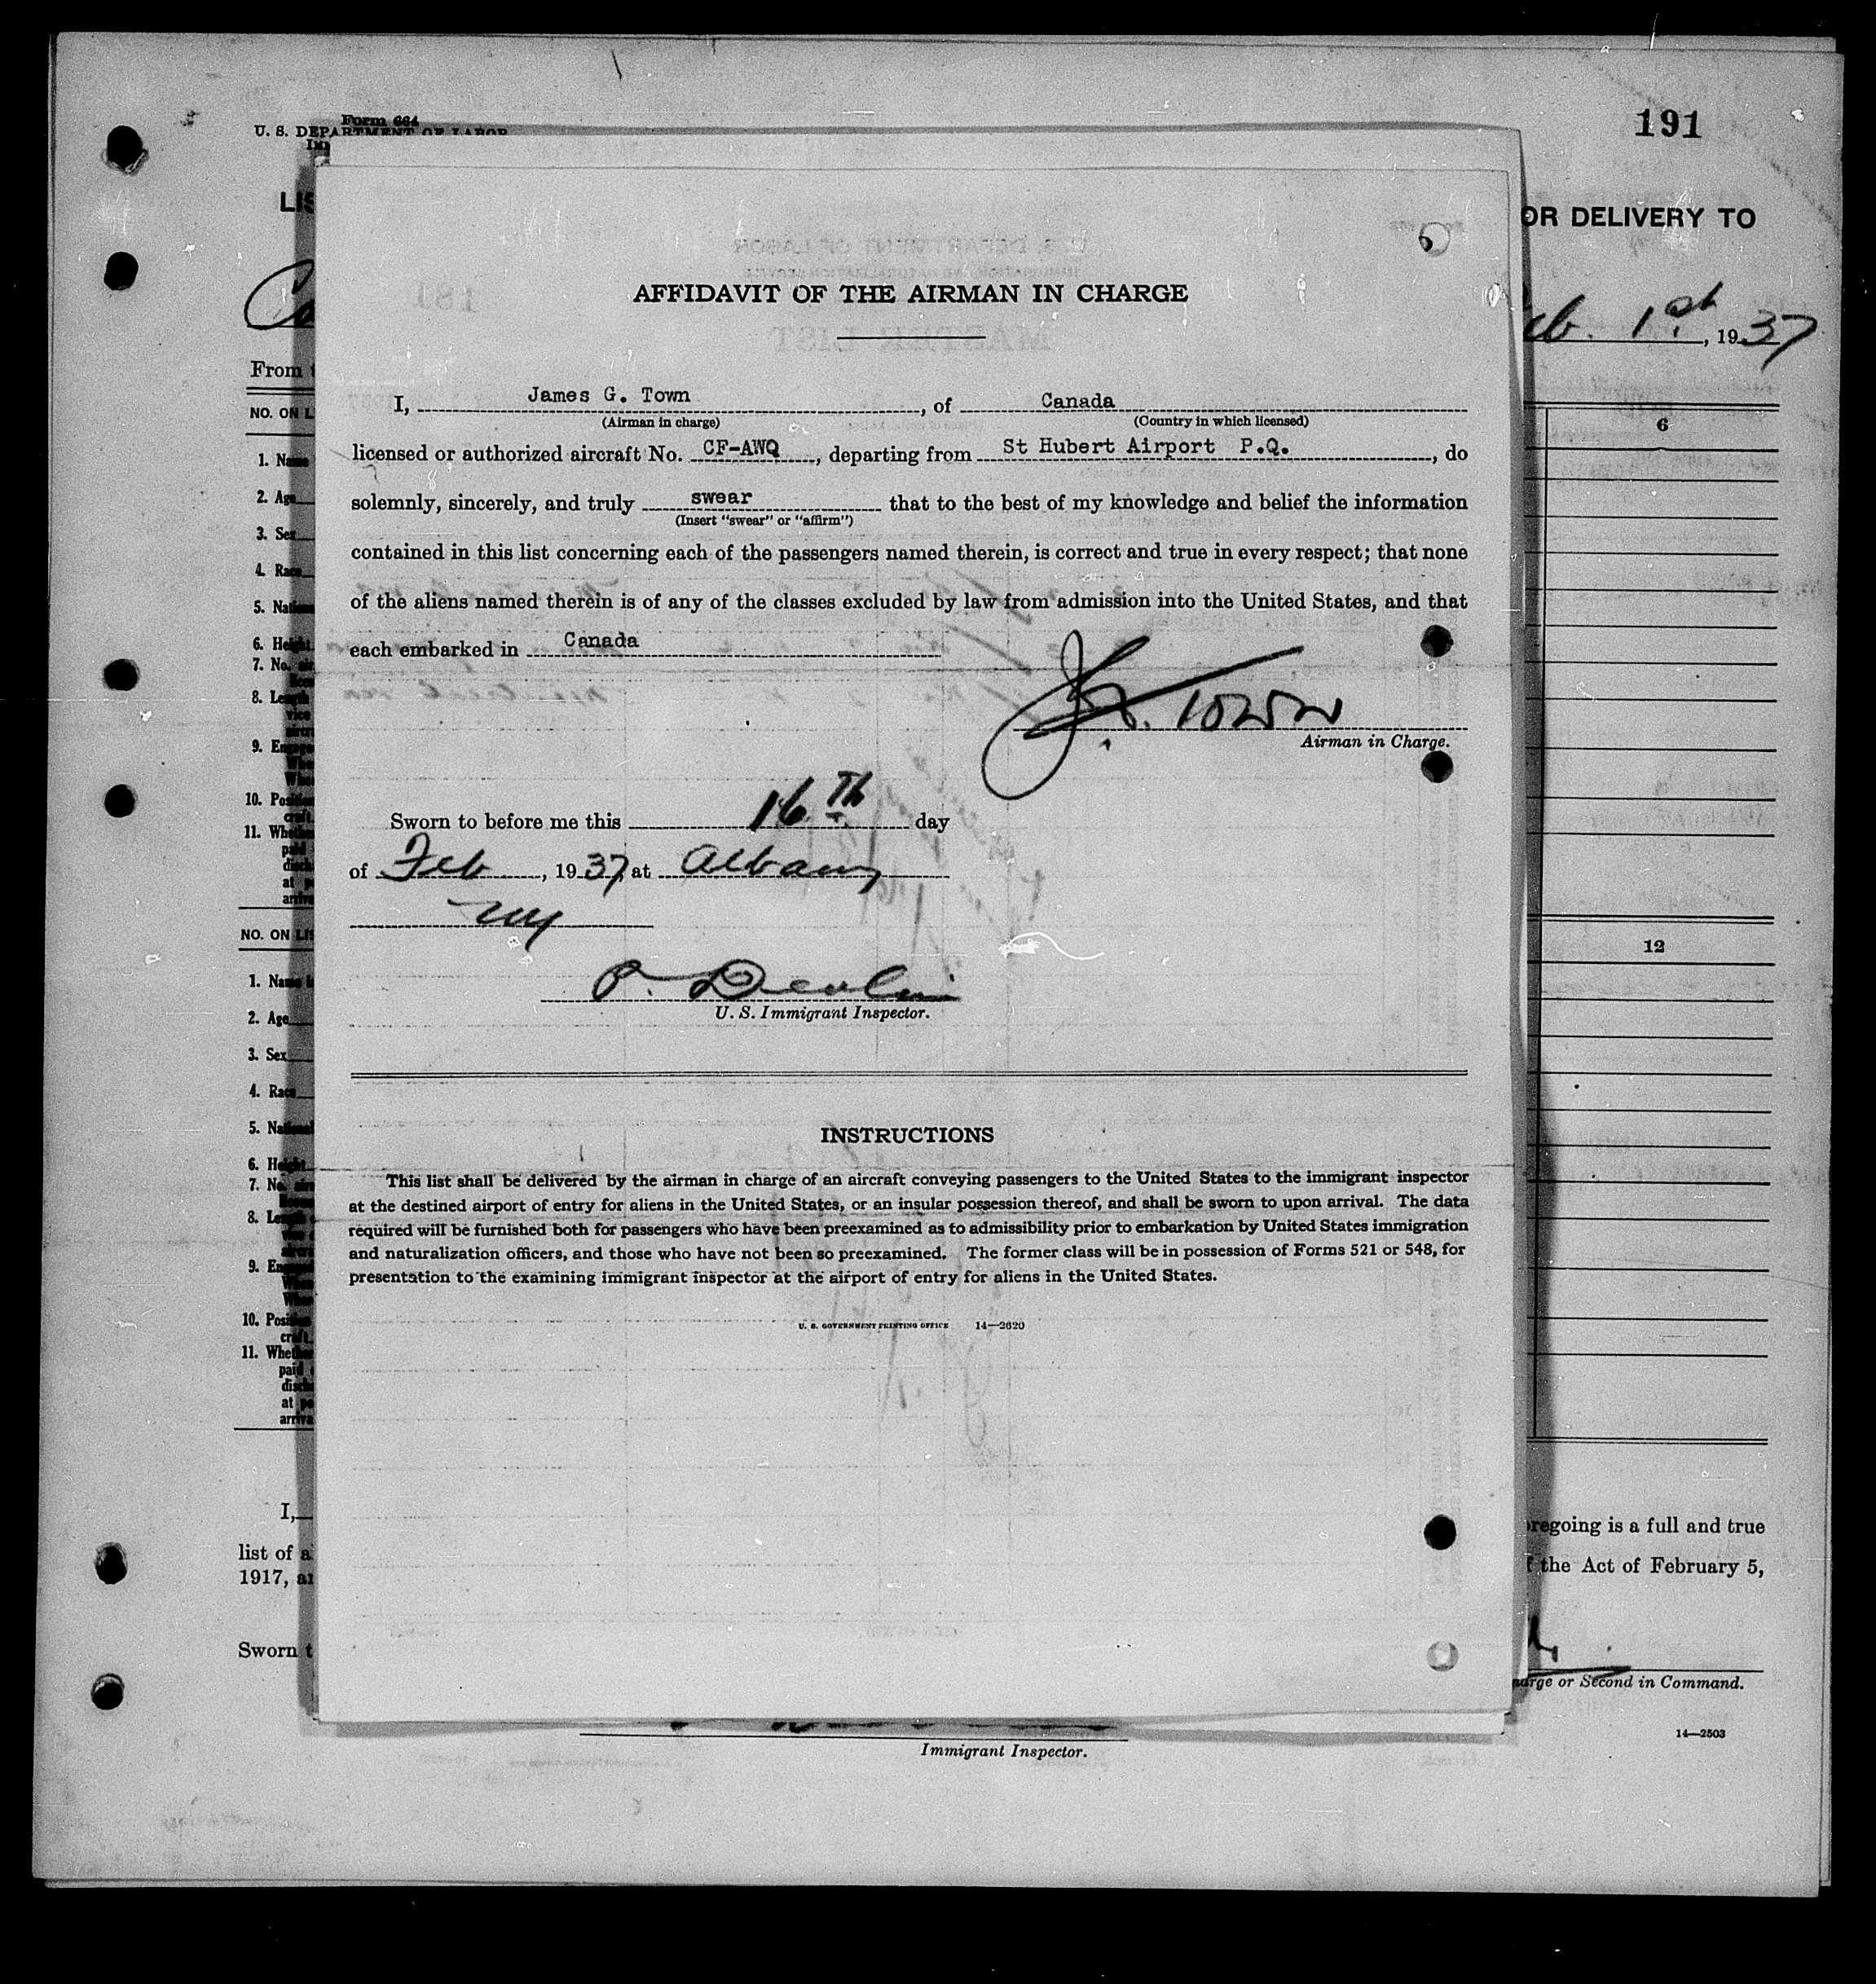 Form 664
U. S. DEPARTMENT OF LABOR
191
LIS
OR DELIVERY TO
1st, 1937
From
NO. ON L
6
1. Name
2. Age
3. Sex
4. Race
5. Nati
6. Height
7. No.
8. Le
9. En
10. Posi
craft
11. Whe
paid
disch
at p
arriva
NO. ON LIS
12
1. Name
2. Age
3. Sex
4. Race
5. National
6. Height
7. No.
8. Le
9. En
10. Posi
craft
11. Whether
paid
disch
at po
arriva
I,
regoing is a full and true
list of a
f the Act of February 5,
1917, an
Sworn t
arge or Second in Command.
14—2503
Immigrant Inspector.
AFFIDAVIT OF THE AIRMAN IN CHARGE
I, James G. Town, of Canada
(Airman in charge) (Country in which licensed)
licensed or authorized aircraft No. CF-AWQ, departing from St Hubert Airport P.Q., do
solemnly, sincerely, and truly swear that to the best of my knowledge and belief the information
(Insert "swear" or "affirm")
contained in this list concerning each of the passengers named therein, is correct and true in every respect; that none
of the aliens named therein is of any of the classes excluded by law from admission into the United States, and that
each embarked in Canada
J.G. Town
Airman in Charge.
Sworn to before me this 16th day
of Feb, 1937, at Albany
NY
P. Devlin
U. S. Immigrant Inspector.
INSTRUCTIONS
This list shall be delivered by the airman in charge of an aircraft conveying passengers to the United States to the immigrant inspector
at the destined airport of entry for aliens in the United States, or an insular possession thereof, and shall be sworn to upon arrival. The data
required will be furnished both for passengers who have been preexamined as to admissibility prior to embarkation by United States immigration
and naturalization officers, and those who have not been so preexamined. The former class will be in possession of Forms 521 or 548, for
presentation to the examining immigrant inspector at the airport of entry for aliens in the United States.
U. S. GOVERNMENT PRINTING OFFICE 14—2620